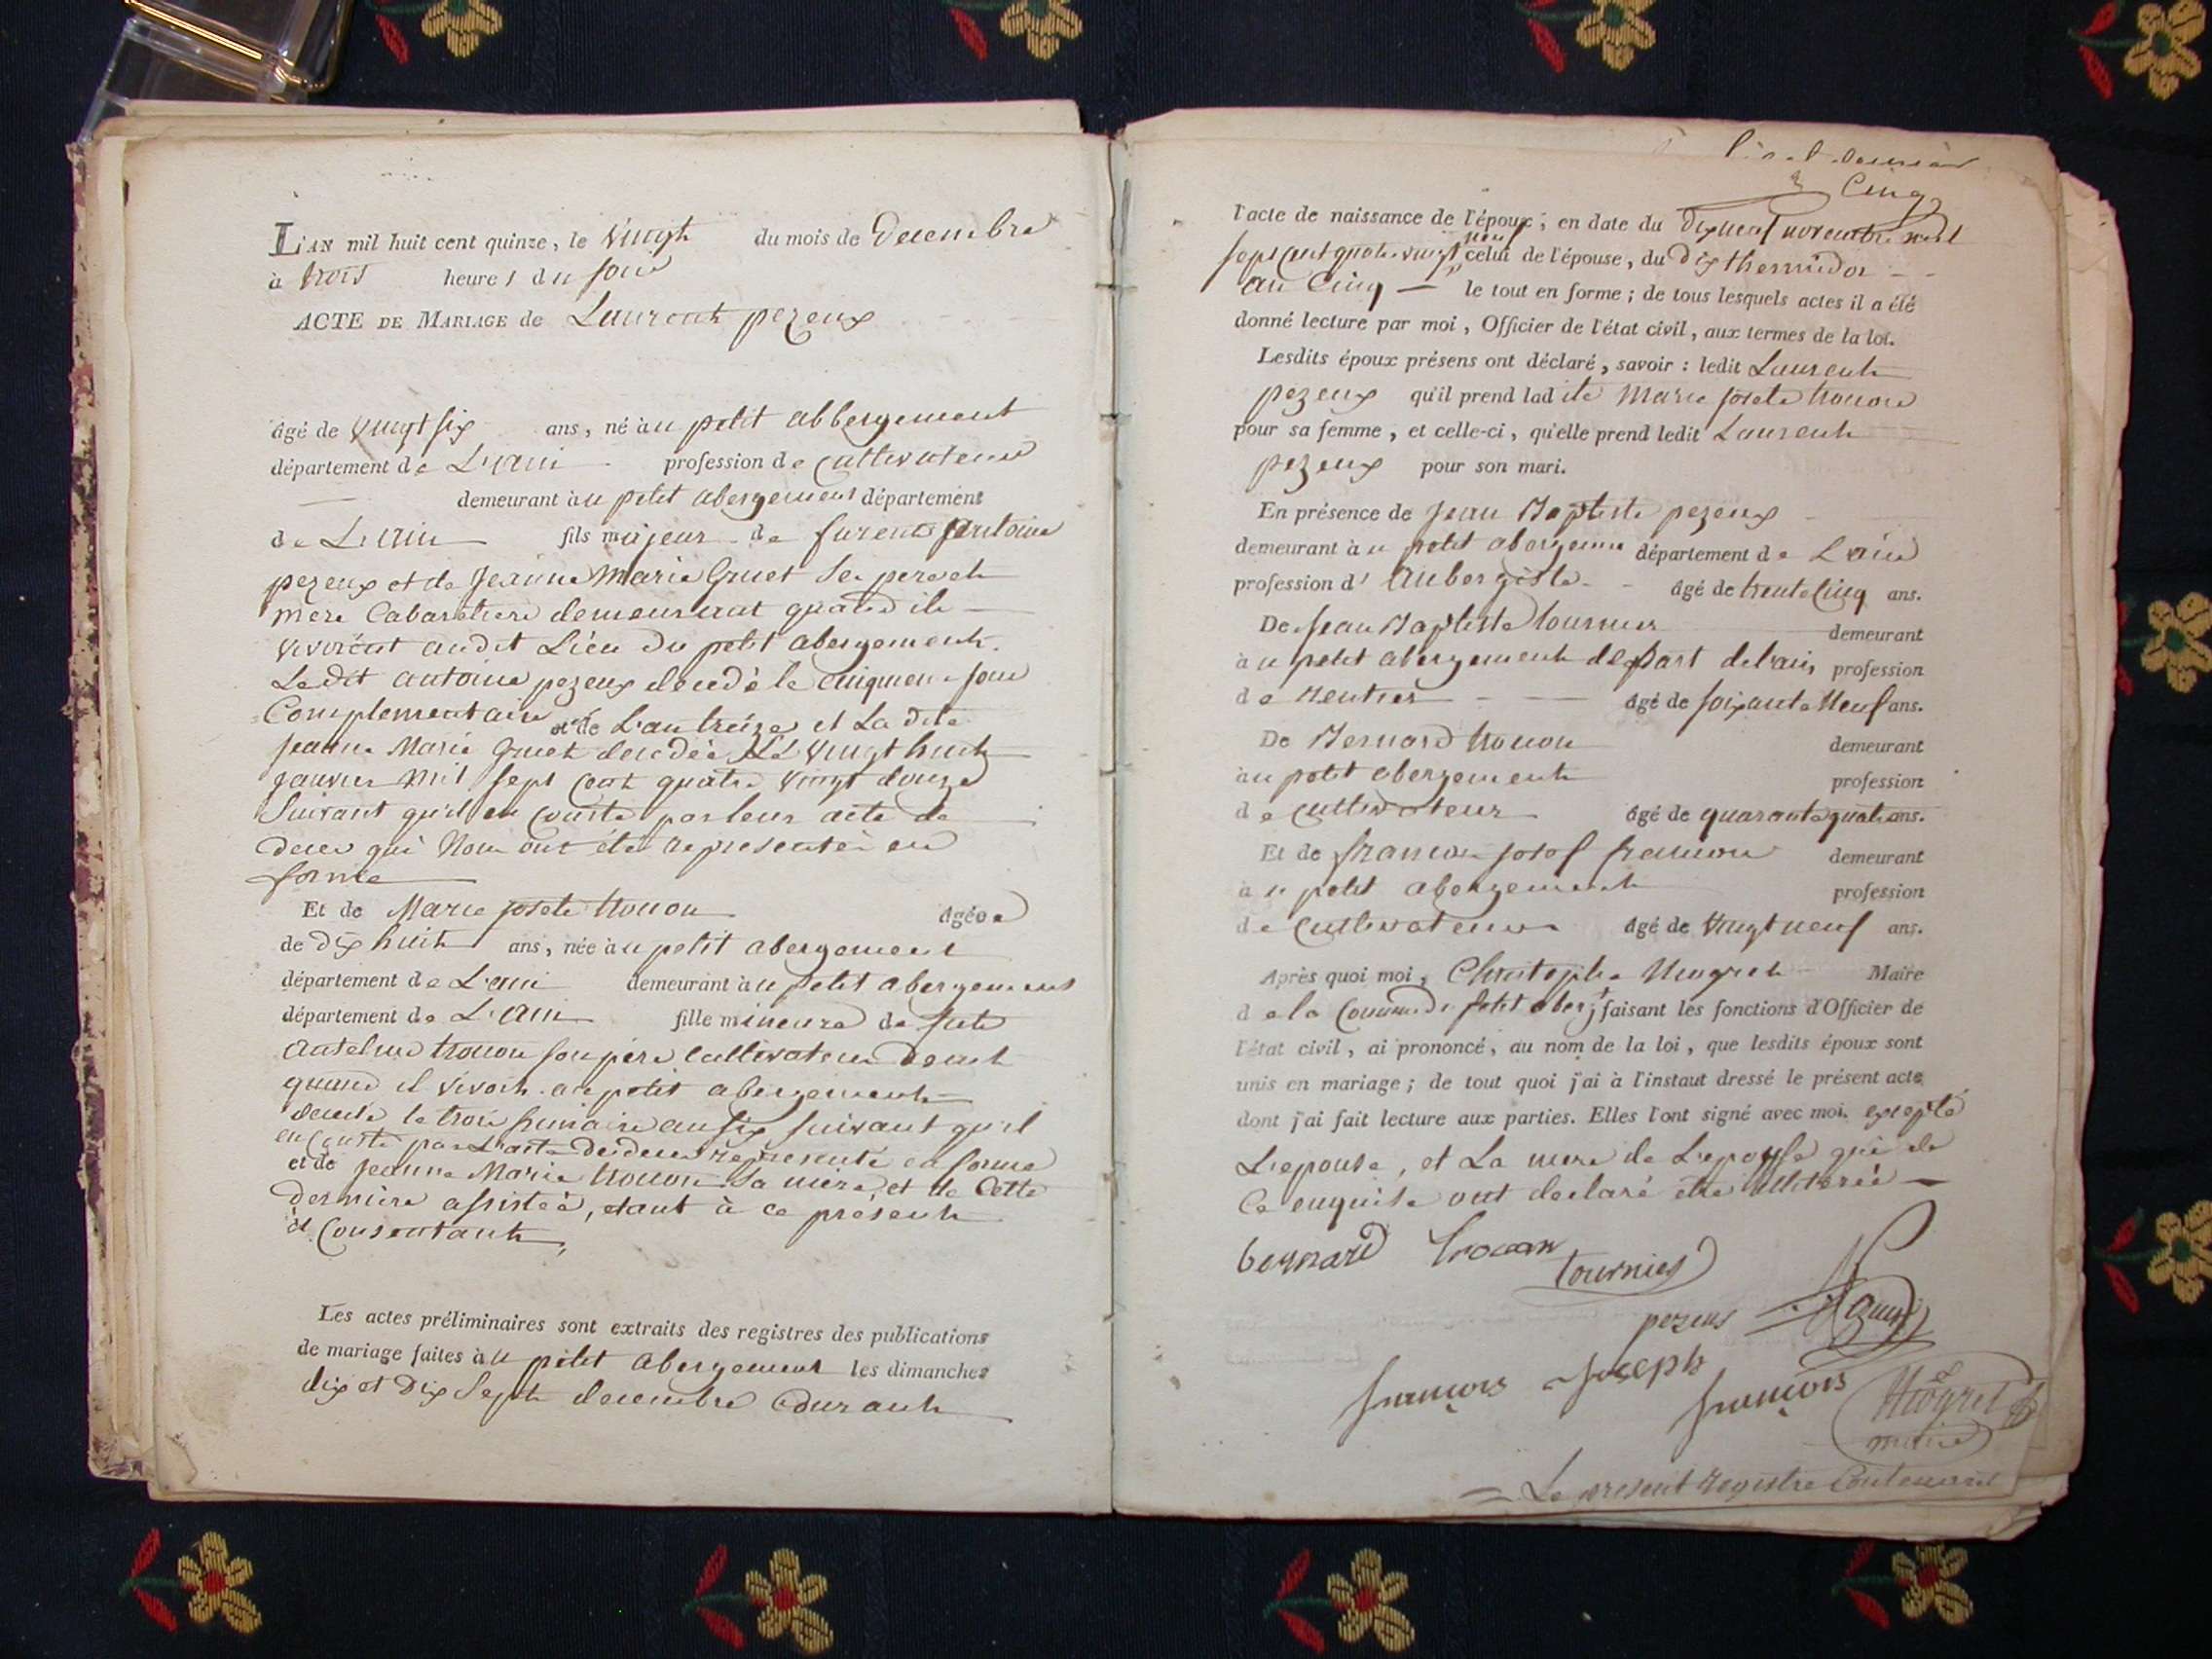 L'AN mil huit cent quinze, le vingt du mois de decembre
à trois heures du soir
ACTE DE MARIAGE de Laurent pezeux
âgé de vingt six ans, né au petit abbergement
département de L'ain profession de cultivateur
demeurant au petit abergement département
de L'ain fils majeur de furent antoine
pezeux et de Jeanne Marie Gruet ses pere et
mere Cabaretiers demeurant quand ils
vivoient audit Lieu du petit abergement.
Ledit antoine pezeux decedé le cinquieme jour
Complementaire de L'an treize et La dite
jeanne Marie Gruet decedée Le vingt huit
janvier mil sept cent quatre vingt douze
Suivant qu'il en conste par leur acte de
deces qui Nous ont été representés en
forme
Et de Marie josete trouon âgée
de dix huit ans, née au petit abergement
département de L'ain demeurant au petit abergement
département de L'ain fille mineure de
antelme trouon son père cultivateur
quand il vivoit au petit abergement
decedé le trois frimaire an six suivant qu'il
en conste par L'acte de deces representé en forme
et de jeanne Marie trouon Sa mère, et de Cette
dernière assistée, etant à ce présente
et Consentante,
Les actes préliminaires sont extraits des registres des publications
de mariage faites au petit abergement les dimanches
dix et dix Sept decembre Courant
Cinq
l'acte de naissance de l'époux, en date du dixneuf novembre mil
sept cent quatre vingt neuf celui de l'épouse, du dix thermidor
an Cinq le tout en forme; de tous lesquels actes il a été
donné lecture par moi, Officier de l'état civil, aux termes de la loi.
Lesdits époux présens ont déclaré, savoir: ledit Laurent
pezeux qu'il prend lad ite Marie josete trouon
pour sa femme, et celle-ci, qu'elle prend ledit Laurent
pezeux pour son mari.
En présence de Jean Baptiste pezeux
demeurant au petit abergement département de L'ain
profession d'Aubergiste âgé de trente Cinq ans.
De Jean Baptiste tournier demeurant
au petit abergement depart de l'ain profession
de Rentier âgé de soixante Neuf ans.
De Bernard trouon demeurant
au petit abergement profession
de cultivateur âgé de quarante quatre ans.
Et de francois josef demeurant
au petit abergement profession
de Cultivateur âgé de vingt neuf ans.
Après quoi moi, Christophe Mogret Maire
de la Commune de petit aberg.t faisant les fonctions d'Officier de
l'état civil, ai prononcé, au nom de la loi, que lesdits époux sont
unis en mariage; de tout quoi j'ai à l'instant dressé le présent acte
dont j'ai fait lecture aux parties. Elles l'ont signé avec moi. excepté
L'epouse, et La mere de L'epouse qui de
Ce enquise ont declaré être illiterée
bernard trouon
tournier
pezeux
françois Joseph françois
Mogret
maire
Le present Registre Contenant